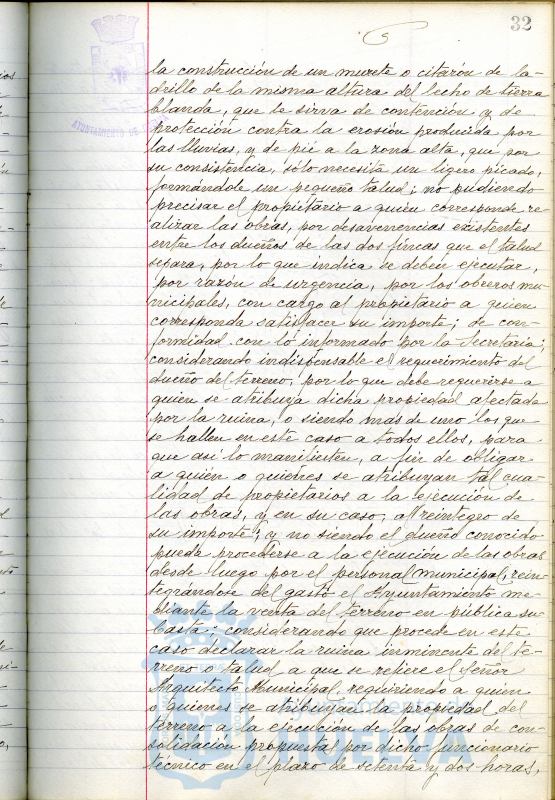 32
la construcción de un murete o citarón de la-
drillo de la misma altura del lecho de tierra
blanda, que le sirva de contención y de
protección contra la erosión producida por
las lluvias, y de pié a la zona alta, que por
su consistencia, sólo necesita un ligero picado,
formándole un pequeño talud; no pudiendo
precisar el propietario a quien corresponde re-
alizar las obras, por desavenencias existentes
entre los dueños de las dos fincas que el talud
separa, por lo que indica se deben ejecutar,
por razón de urgencia, por los obreros mu-
nicipales, con cargo al propietario a quien
corresponda satisfacer su importe; de con-
formidad con lo informado por la Secretaría;
considerando indispensable el requerimiento del
dueño del terreno, por lo que debe requerirse a
quien se atribuya dicha propiedad afectada
por la ruina, o siendo mas de uno los que
se hallen en este caso a todos ellos, para
que así lo manifiesten, a fin de obligar
a quién o quiénes se atribuyan tal cua-
lidad de propietarios a la ejecución de
las obras, y en su caso, al reintegro de
su importe; y no siendo el dueño conocido
pueda procederse a la ejecución de las obras
desde luego por el personal municipal, rein-
tegrándose del gasto el Ayuntamiento me-
diante la venta del terreno en pública su-
basta; considerando que procede en este
caso declarar la ruina inminente del te-
rreno o talud a que se refiere el Señor
Arquitecto Municipal, requiriendo a quien
o quienes se atribuyan la propiedad del
terreno a la ejecución de las obras de con-
solidación propuestas por dicho funcionario
técnico en el plazo de setenta y dos horas,